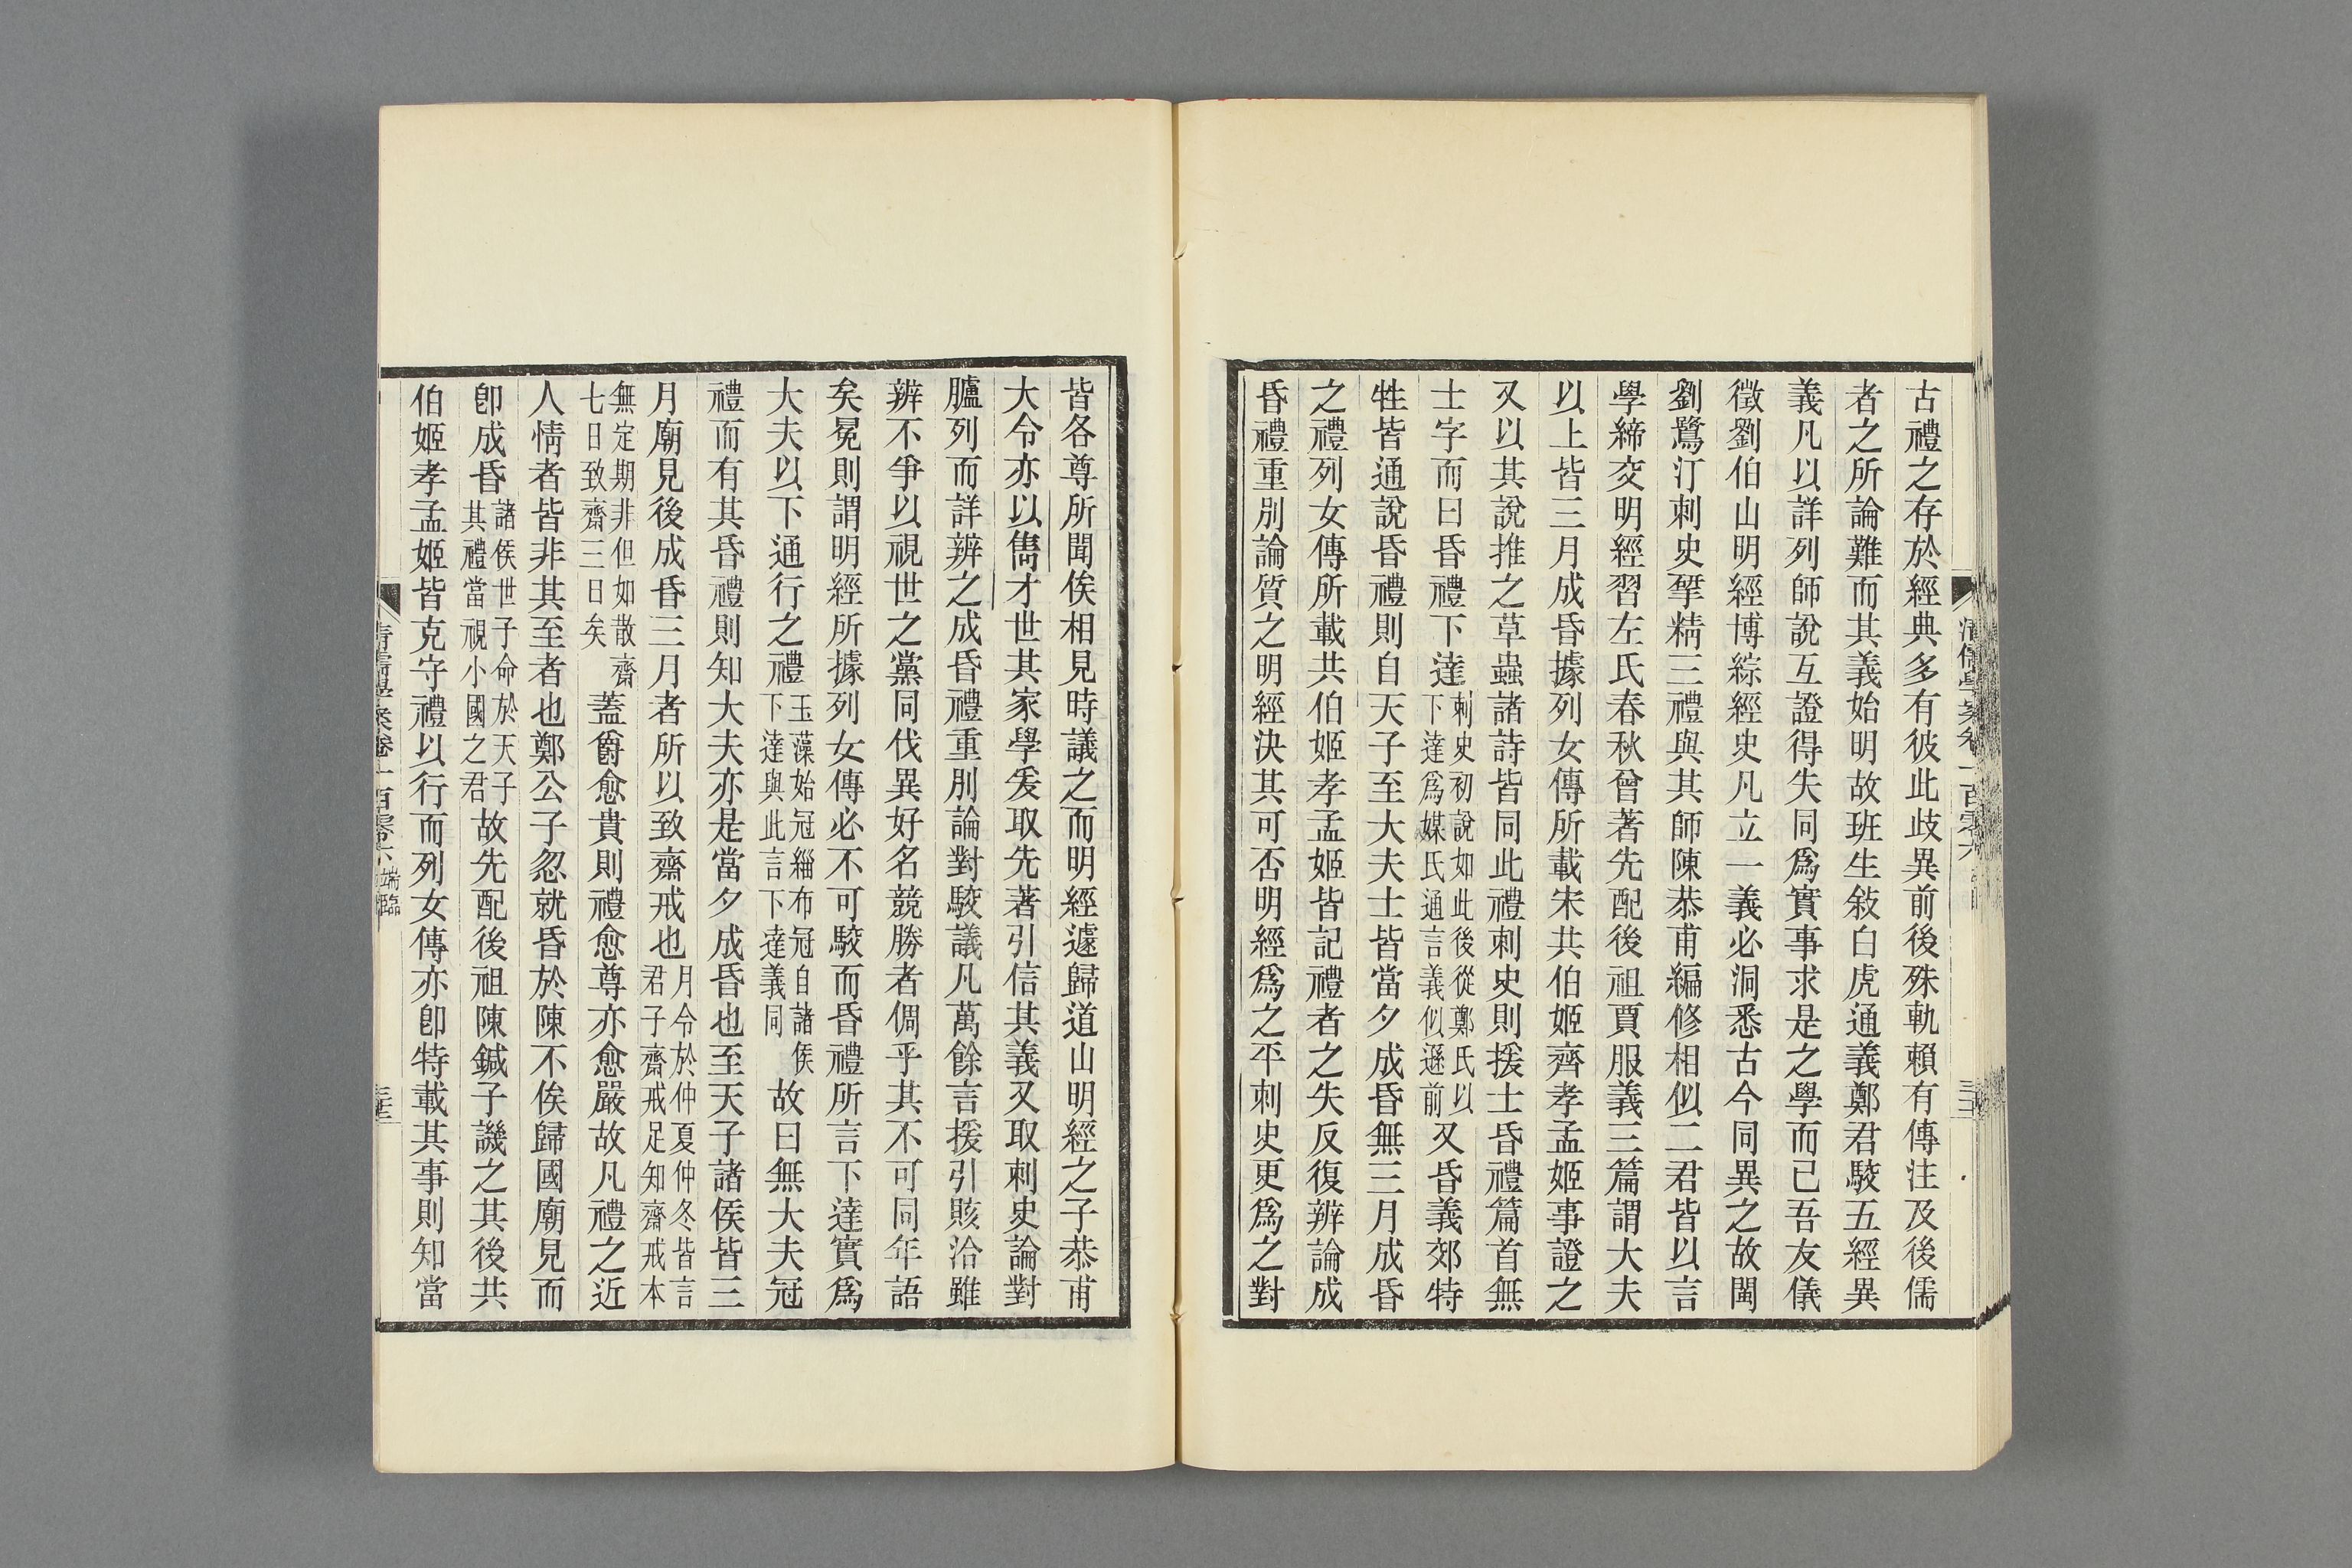 古禮之存於經典多有彼此歧異前後殊軌賴有傳注及後儒
者之所論難而其義始明故班生敍白虎通義鄭君駮五經異
義凡以詳列師說互證得失同爲實事求是之學而已吾友儀
徵劉伯山明經博綜經史凡立一義必洞悉古今同異之故閩
劉鷺汀刺史揅精三禮與其師陳恭甫編修相似二君皆以言
學締交明經習左氏春秋曾著先配後祖賈服義三篇謂大夫
以上皆三月成昏據列女傳所載宋共伯姬齊孝孟姬事證之
又以其說推之草蟲諸詩皆同此禮刺史則援士昏禮篇首無
士字而曰昏禮下達刺史初說如此後從鄭氏以下達爲媒氏通言義似遜前又昏義郊特
牲皆通說昏禮則自天子至大夫士皆當夕成昏無三月成昏
之禮列女傳所載共伯姬孝孟姬皆記禮者之失反復辨論成
昏禮重別論質之明經決其可否明經爲之平刺史更爲之對
皆各尊所聞俟相見時議之而明經遽歸道山明經之子恭甫
大令亦以雋才世其家學爰取先著引信其義又取刺史論對
臚列而詳辨之成昏禮重別論對駮議凡萬餘言援引賅洽雖
辨不爭以視世之黨同伐異好名競勝者倜乎其不可同年語
矣冕則謂明經所據列女傳必不可駮而昏禮所言下達實爲
大夫以下通行之禮玉藻始冠緇布冠自諸侯下達與此言下達義同故曰無大夫冠
禮而有其昏禮則知大夫亦是當夕成昏也至天子諸侯皆三
月廟見後成昏三月者所以致齋戒也月令於仲夏仲冬皆言君子齋戒足知齋戒本
無定期非但如散齋七日致齋三日矣蓋爵愈貴則禮愈尊亦愈嚴故凡禮之近
人情者皆非其至者也鄭公子忽就昏於陳不俟歸國廟見而
卽成昏諸侯世子命於天子其禮當視小國之君故先配後祖陳鍼子譏之其後共
伯姬孝孟姬皆克守禮以行而列女傳亦卽特載其事則知當
清儒學案卷一百零六 端臨